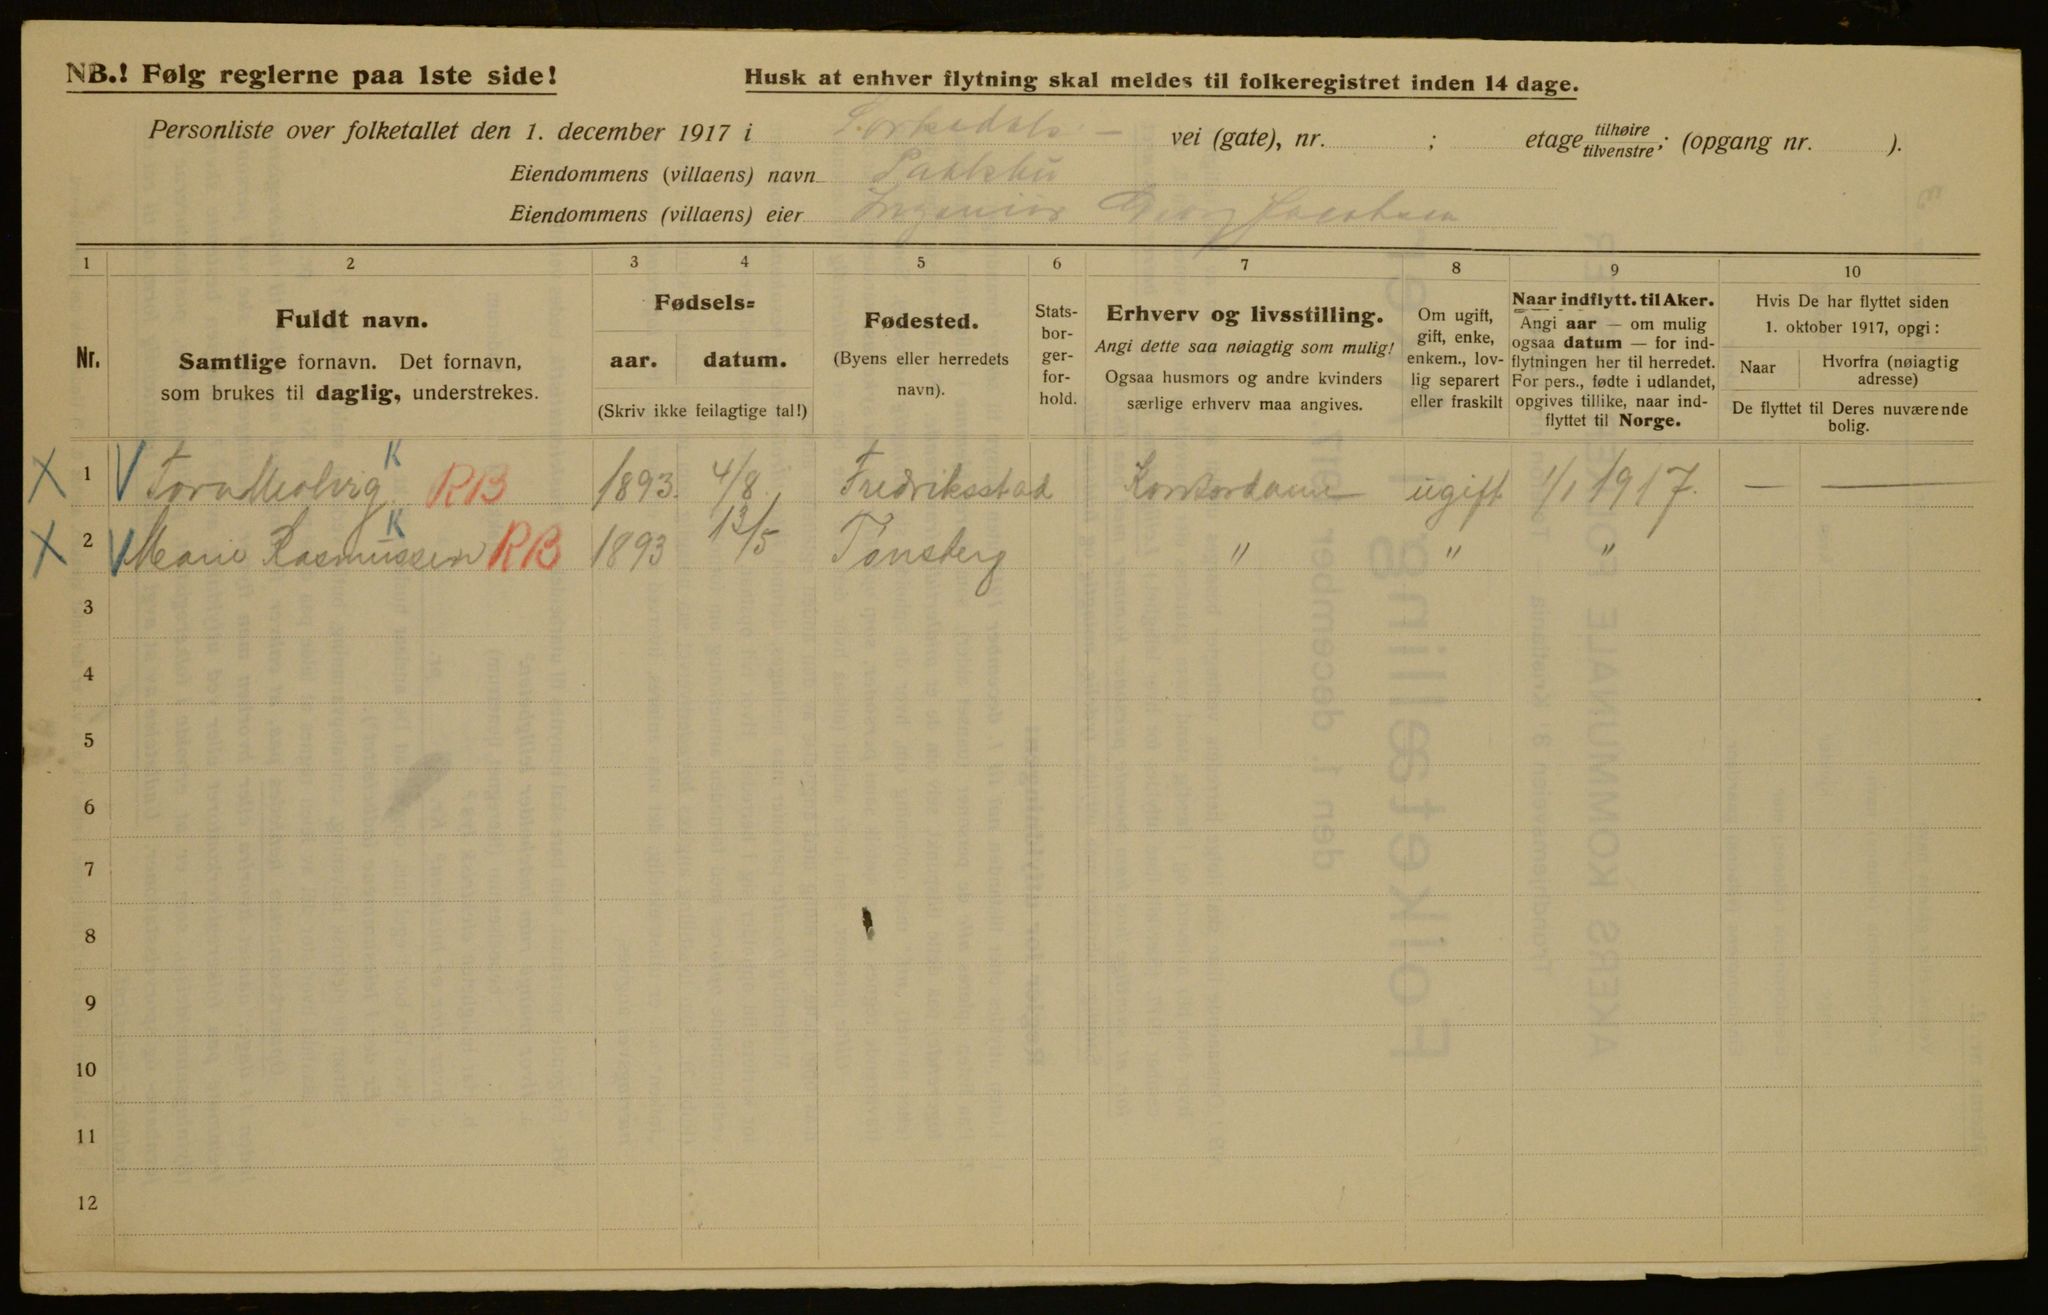 NB.! Følg reglerne paa 1ste side!
Husk at enhver flytning skal meldes til folkeregistret inden 14 dage.
Personliste over folketallet den 1. december 1917 i Sørkedals- vei (gate), nr. ; etage tilhøire tilvenstre; (opgang nr. ).
Eiendommens (villaens) navn
Eiendommens (villaens) eier Ingeniør Georg Jacobsen
1 2 3 4 5 6 7 8 9 10
Nr.
Fuldt navn.
Samtlige fornavn. Det fornavn,
som brukes til daglig, understrekes.
Fødsels=
aar. datum.
(Skriv ikke feilagtige tal!)
Fødested.
(Byens eller herredets
navn).
Stats-
bor-
ger-
for-
hold.
Erhverv og livsstilling.
Angi dette saa nøiagtig som mulig!
Ogsaa husmors og andre kvinders
særlige erhverv maa angives.
Om ugift,
gift, enke,
enkem., lov-
lig separert
eller fraskilt
Naar indflytt. til Aker.
Angi aar — om mulig
ogsaa datum — for ind-
flytningen her til herredet.
For pers., fødte i udlandet,
opgives tillike, naar ind-
flyttet til Norge.
Hvis De har flyttet siden
1. oktober 1917, opgi:
Naar
Hvorfra (nøiagtig
adresse)
De flyttet til Deres nuværende
bolig.
X 1 V K RB 1893. 4/8 Fredriksstad Kontordame ugift 1/1 1917. — —
X 2 V Marie Rasmussen K RB 1893 13/5 Tønsberg " " "
3
4
5
6
7
8
9
10
11
12